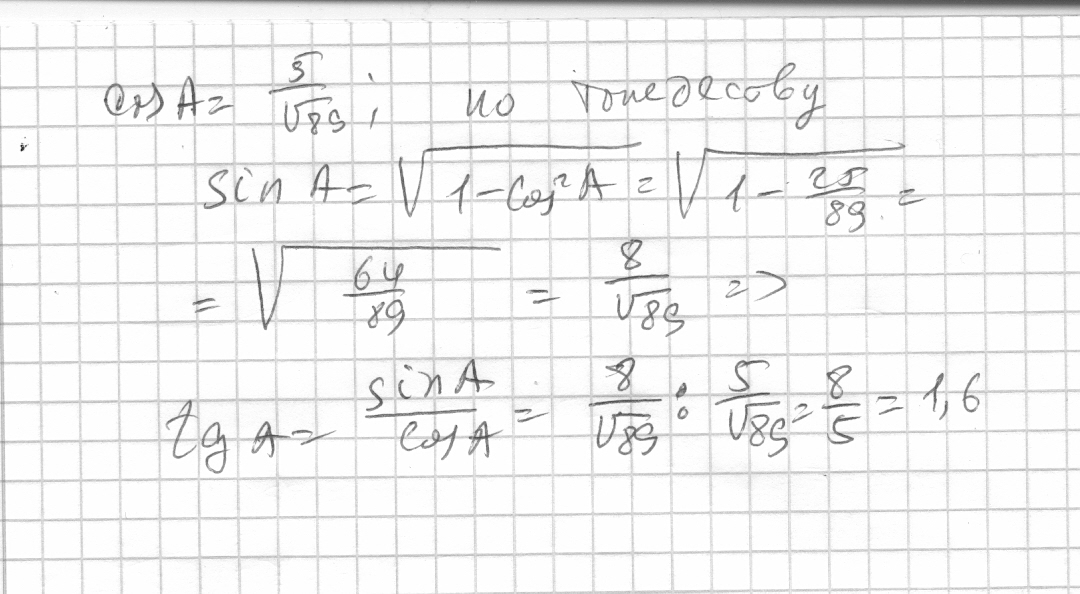 cos A = 5/√89; по тождесову
sin A = √(1 - cos²A) = √(1 - 25/89) =
= √(64/89) = 8/√89 =>
tg A = sin A/cos A = 8/√89 : 5/√89 = 8/5 = 1,6